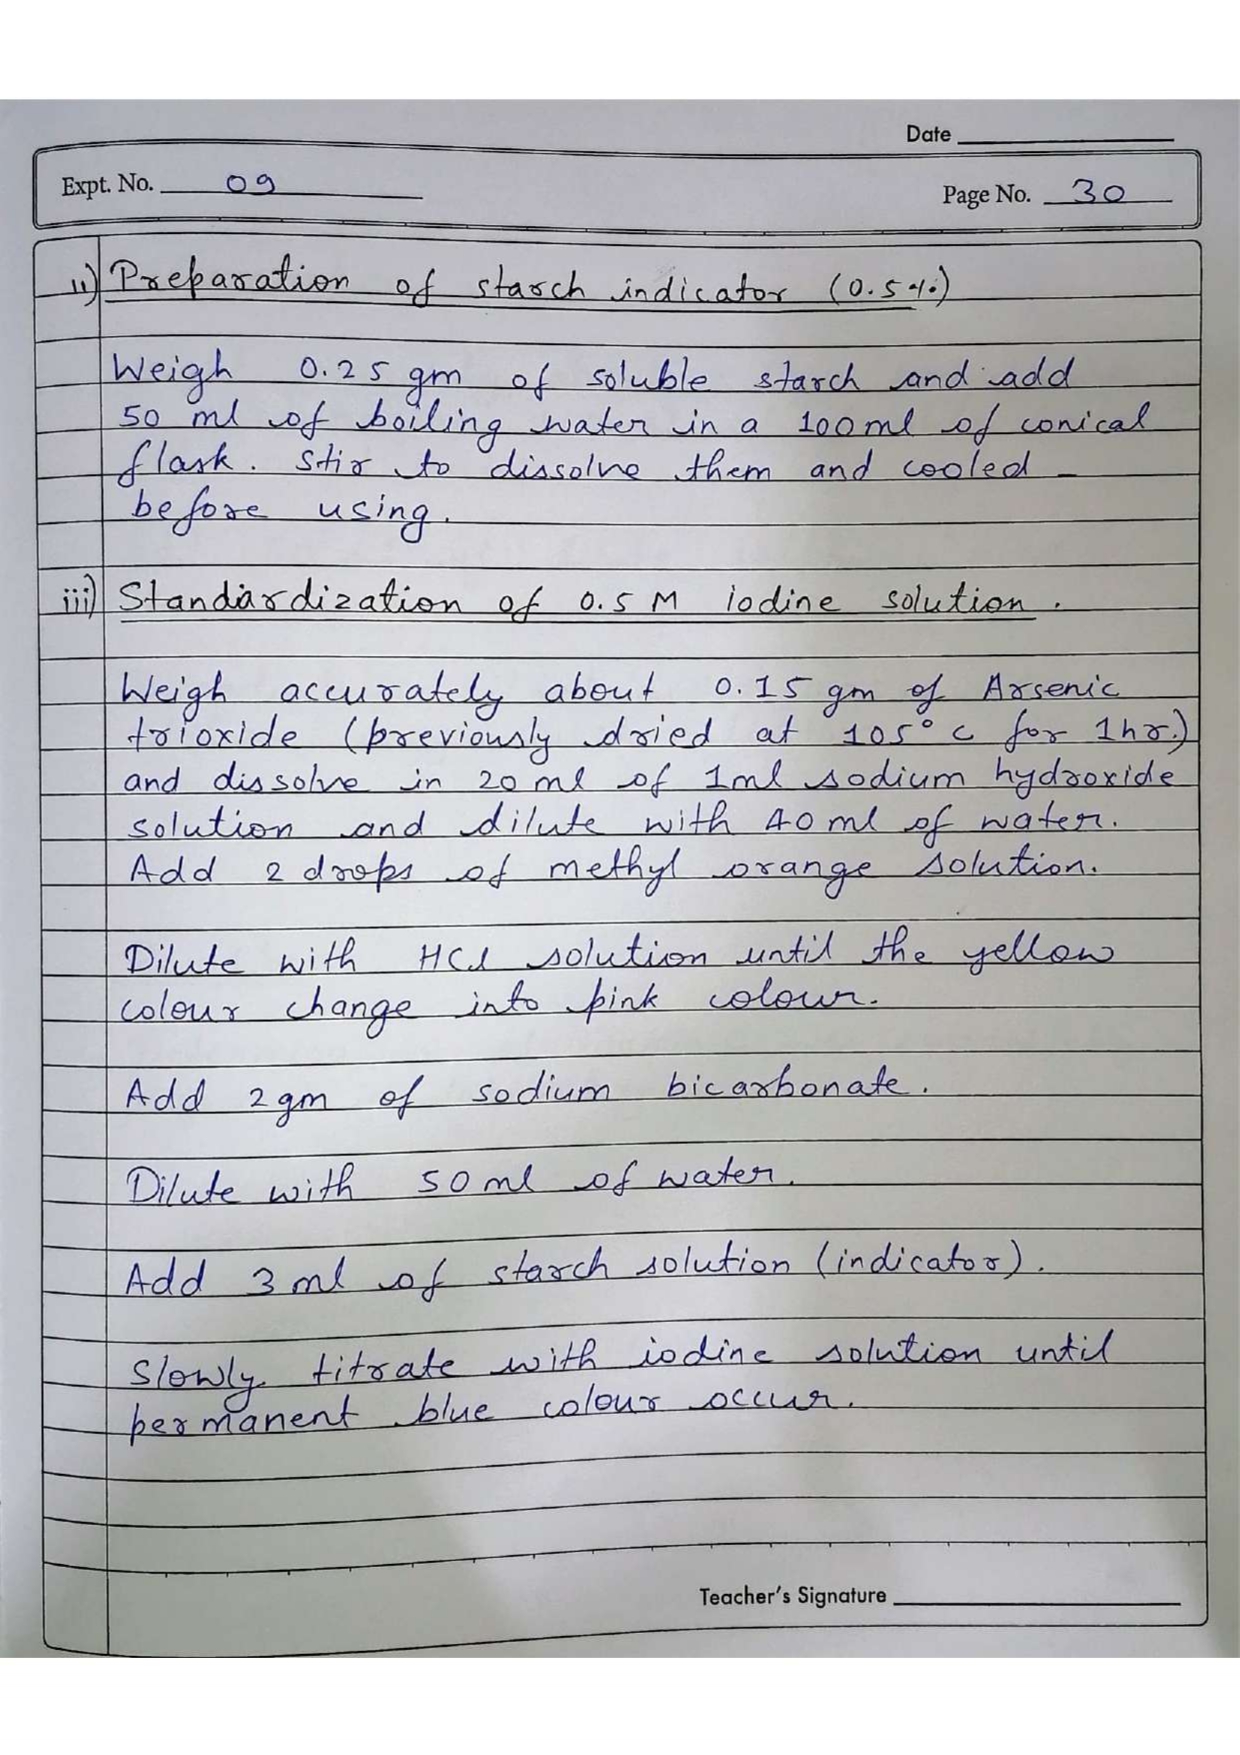 Date
Expt. No. 09
Page No. 30
ii) Preparation of starch indicator (0.5%)
Weigh 0.25 gm of soluble starch and add
50 ml of boiling water in a 100ml of conical
flask. Stir to dissolve them and cooled
before using.
iii) Standardization of 0.5 M iodine solution.
Weigh accurately about 0.15 gm of Arsenic
trioxide (previously dried at 105°c for 1hr.)
and dissolve in 20 ml of 1ml sodium hydroxide
solution and dilute with 40 ml of water.
Add 2 drops of methyl orange solution.
Dilute with HCl solution until the yellow
colour change into pink colour.
Add 2gm of sodium bicarbonate.
Dilute with 50 ml of water.
Add 3 ml of starch solution (indicator).
Slowly titrate with iodine solution until
permanent blue colour occur.
Teacher's Signature